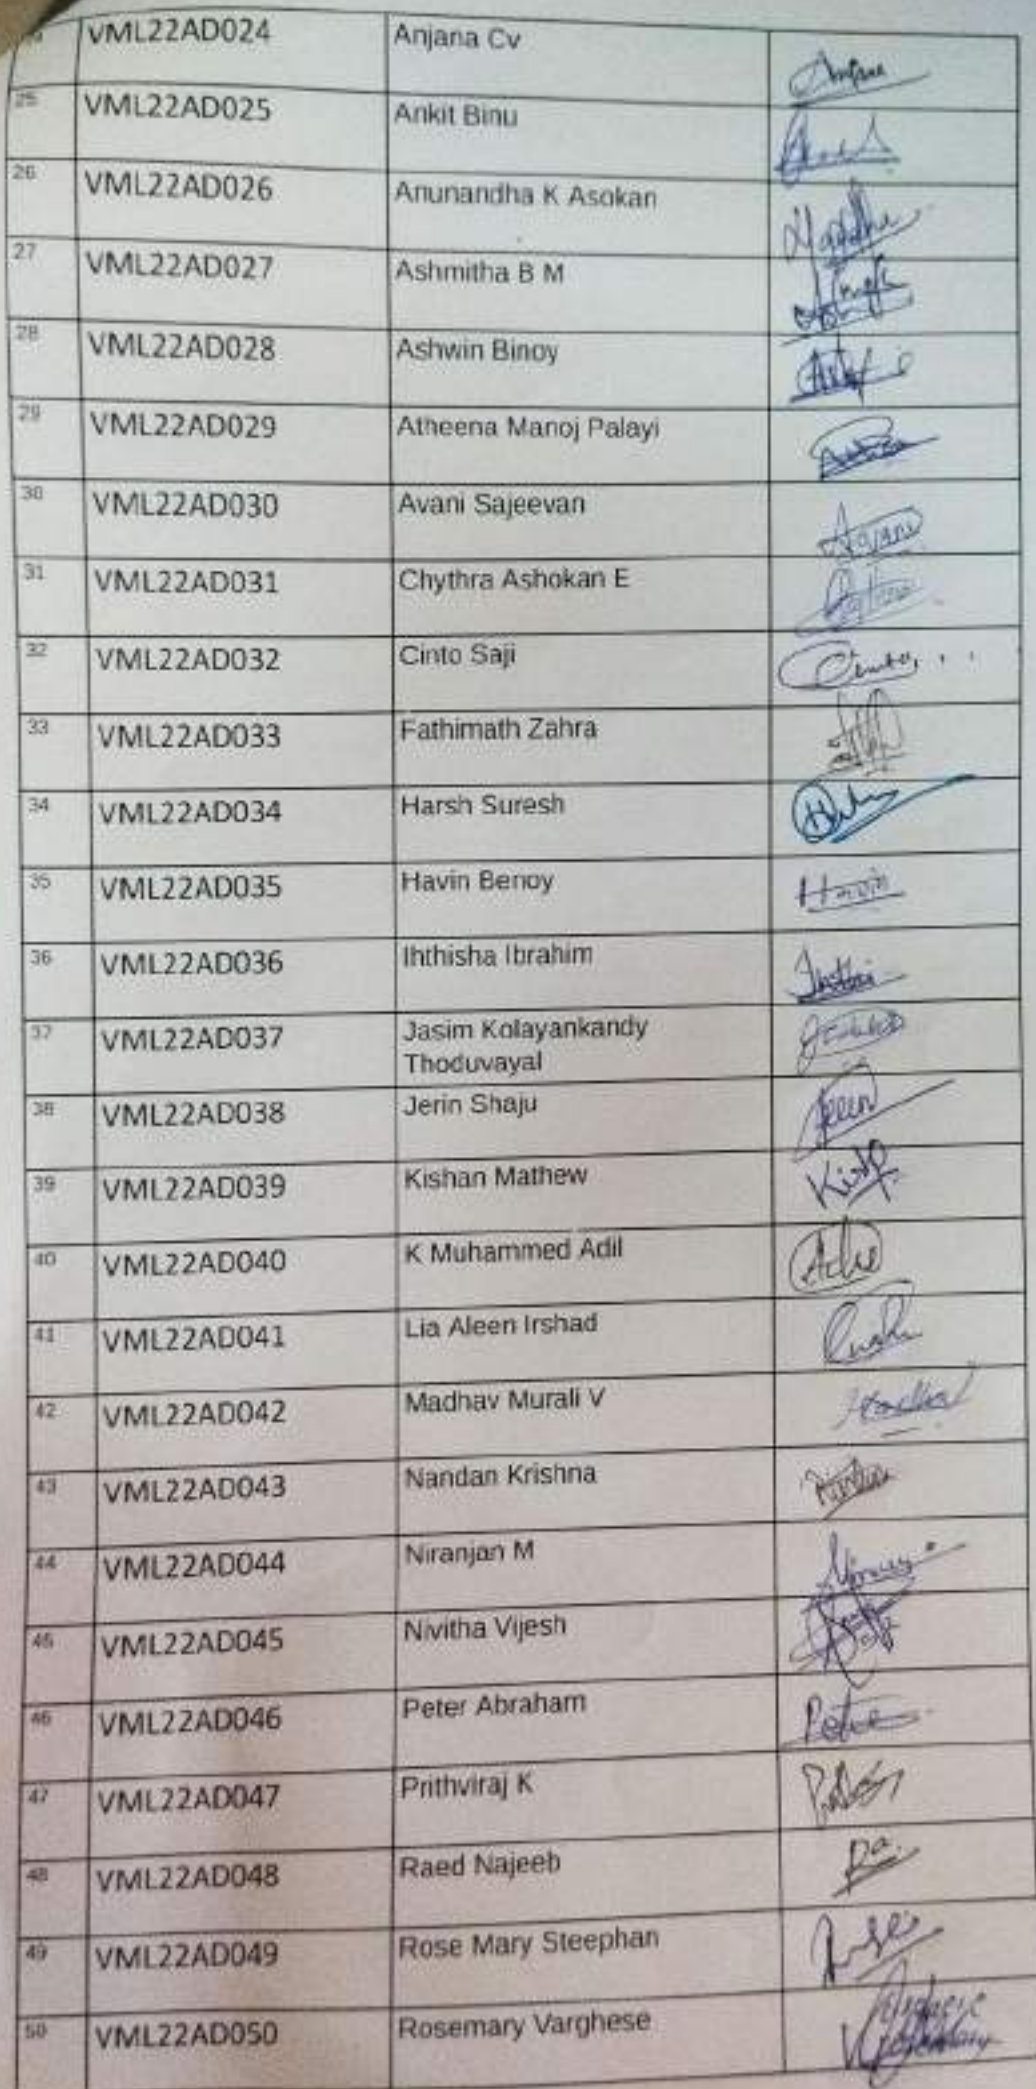 VML22AD024 Anjana Cv Anjana
25 VML22AD025 Ankit Binu
26 VML22AD026 Anunandha K Asokan
27 VML22AD027 Ashmitha B M
28 VML22AD028 Ashwin Binoy
29 VML22AD029 Atheena Manoj Palayi
30 VML22AD030 Avani Sajeevan Avani
31 VML22AD031 Chythra Ashokan E
32 VML22AD032 Cinto Saji Cinto
33 VML22AD033 Fathimath Zahra
34 VML22AD034 Harsh Suresh
35 VML22AD035 Havin Benoy Havin
36 VML22AD036 Ihthisha Ibrahim
37 VML22AD037 Jasim Kolayankandy
Thoduvayal
38 VML22AD038 Jerin Shaju
39 VML22AD039 Kishan Mathew
40 VML22AD040 K Muhammed Adil
41 VML22AD041 Lia Aleen Irshad
42 VML22AD042 Madhav Murali V
43 VML22AD043 Nandan Krishna
44 VML22AD044 Niranjan M
45 VML22AD045 Nivitha Vijesh
46 VML22AD046 Peter Abraham
47 VML22AD047 Prithviraj K
48 VML22AD048 Raed Najeeb
49 VML22AD049 Rose Mary Steephan
50 VML22AD050 Rosemary Varghese